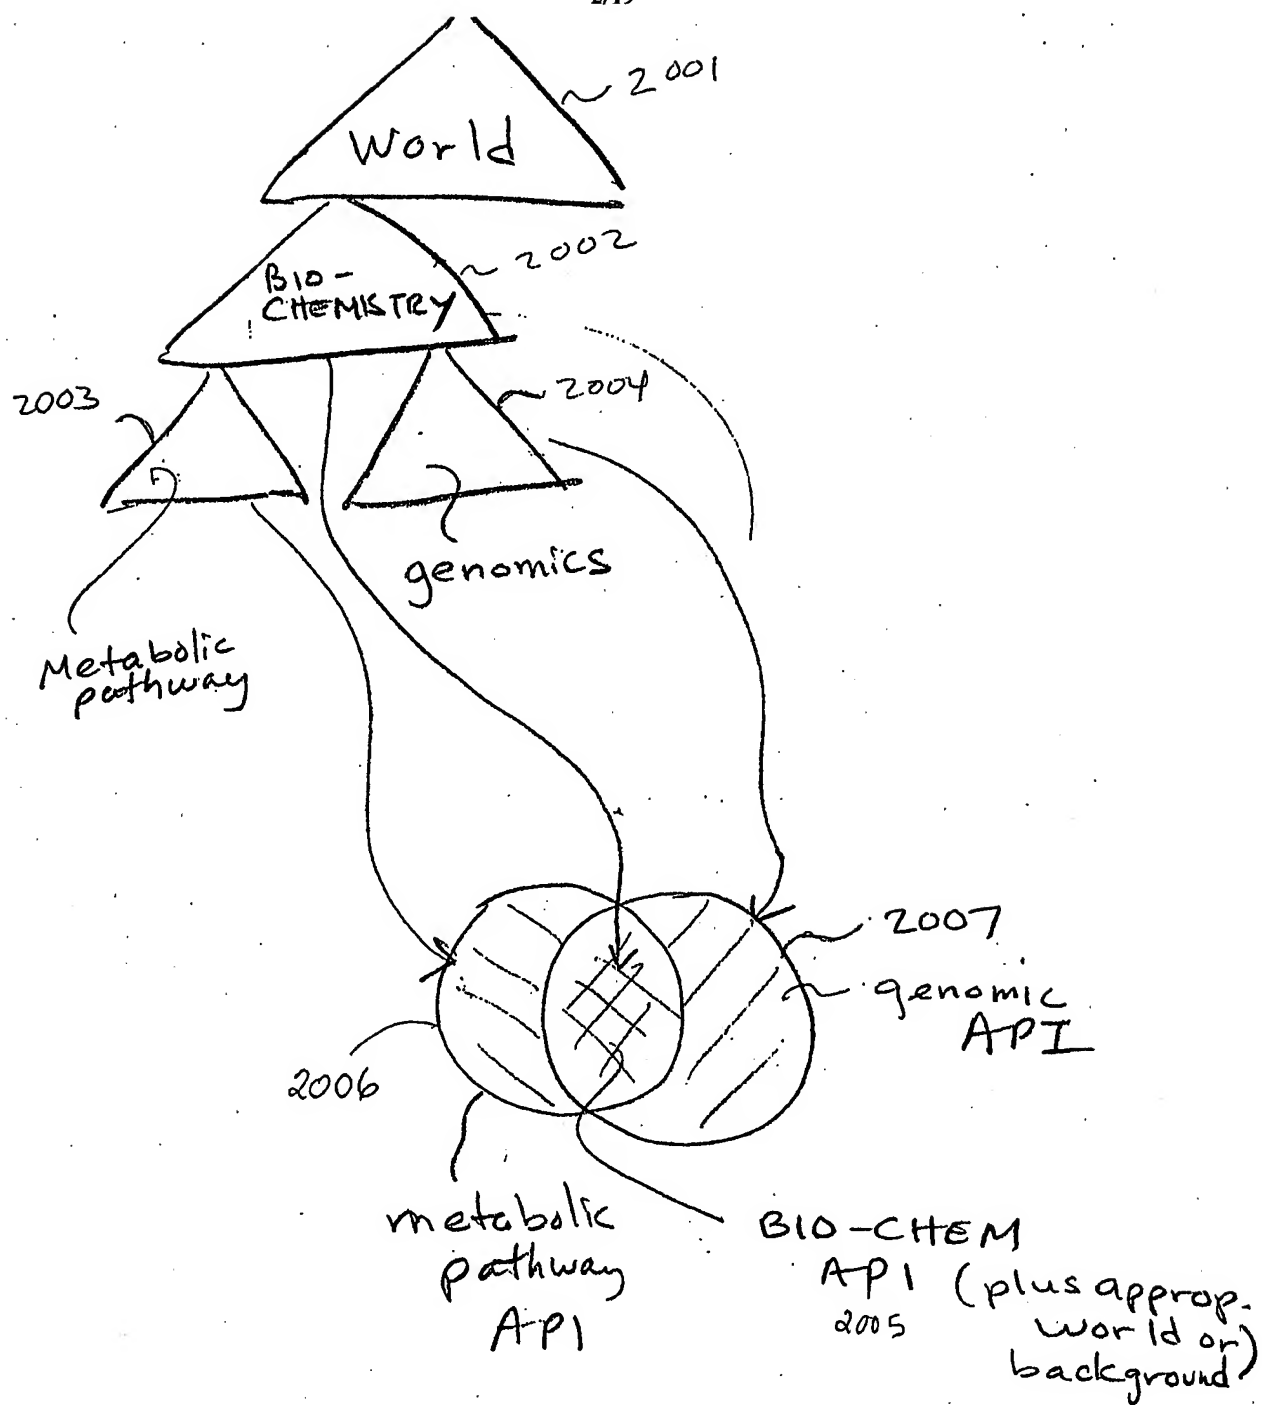 2/19
2001
World
2002
BIO-
CHEMISTRY
2003
2004
genomics
Metabolic
pathway
2007
genomic
API
2006
metabolic
pathway
API
BIO-CHEM
API (plus approp.
2005 world or)
background